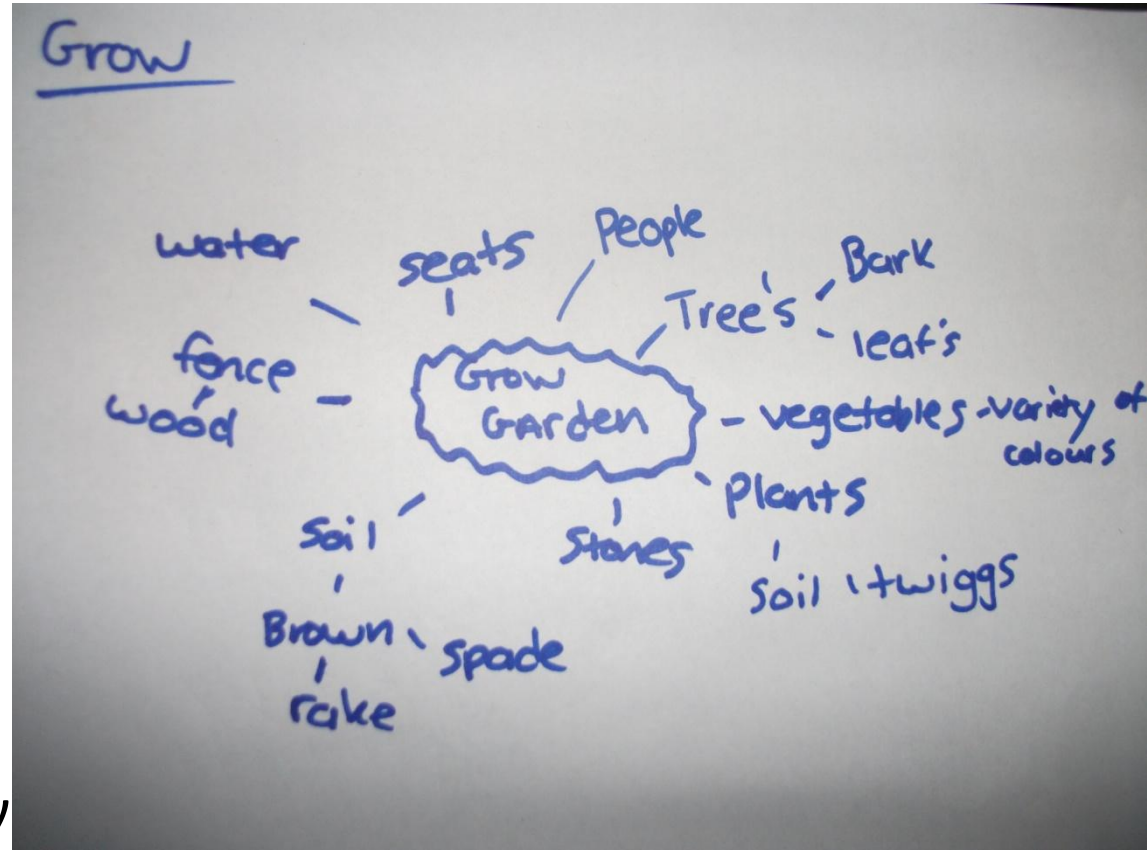 Grow
water
seats
People
Tree's
Bark
leaf's
fence
wood
Grow
GArden
vegetables - variety of
colours
Plants
soil
twiggs
Stones
Soil
Brown
spade
rake